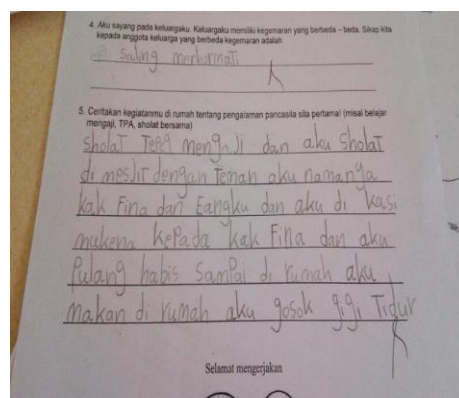 4. Aku sayang pada keluargaku. Keluargaku memiliki kegemaran yang berbeda – beda. Sikap kita
kepada anggota keluarga yang berbeda kegemaran adalah
saling menhormati
5. Ceritakan kegiatanmu di rumah tentang pengalaman pancasila sila pertama! (misal belajar
mengaji, TPA, sholat bersama)
Sholat mengaji dan aku Sholat
di mesjit dengan Teman aku namanya
kak Fina dan Eangku dan aku di kasi
mukena kepada kak Fina dan aku
Pulang habis Sampai di rumah aku
makan di rumah aku gosok gigi Tidur
Selamat mengerjakan